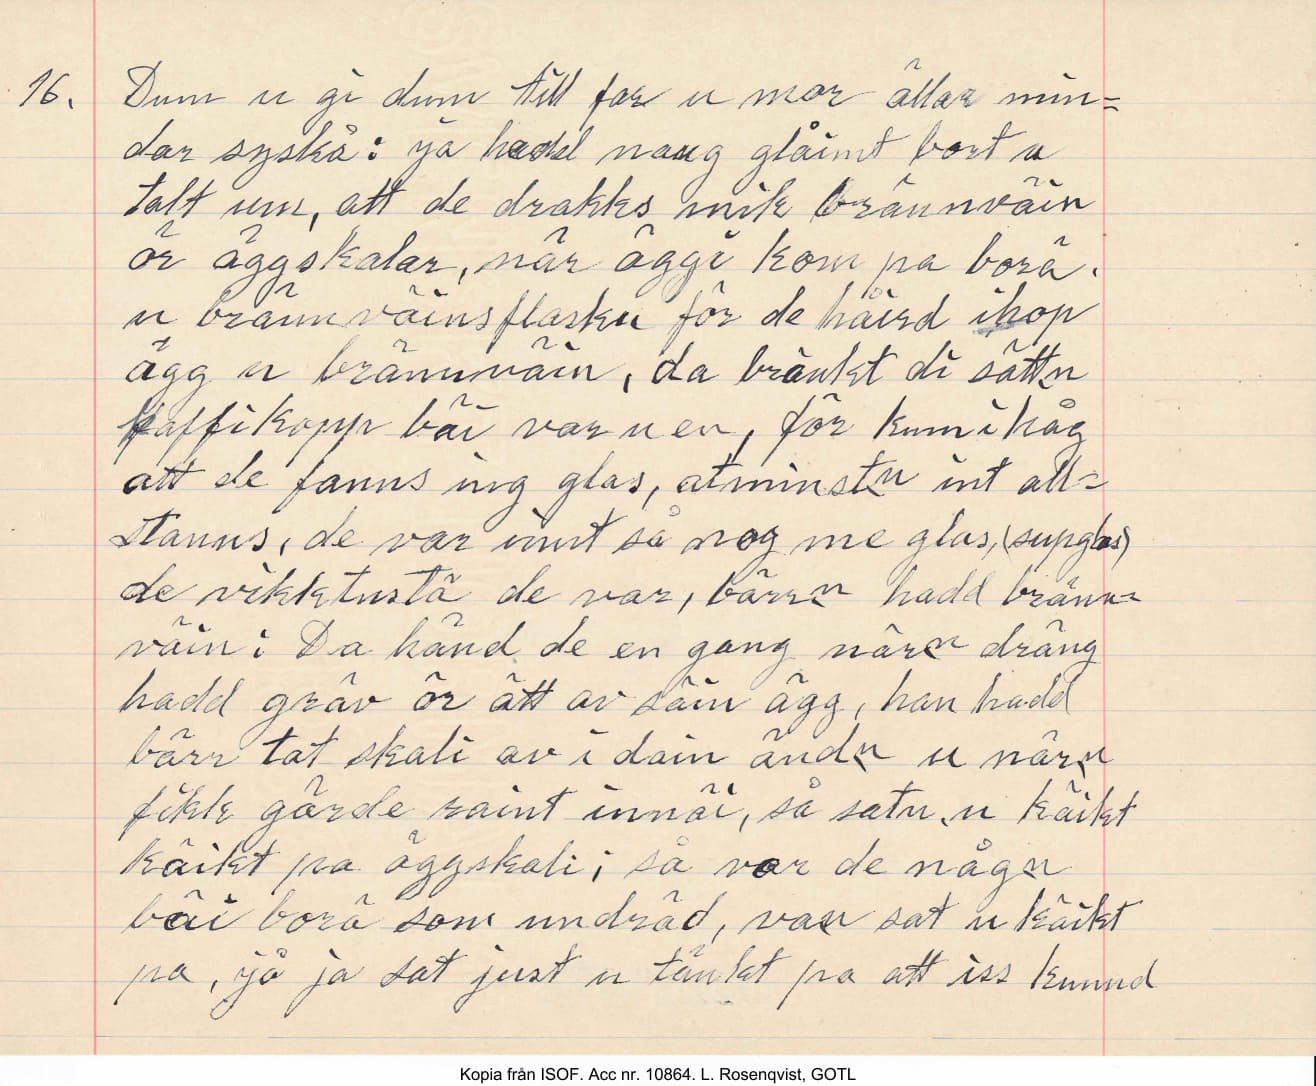 16. Dum u gi dum till far u mor ällar min=
dar syskå: ja hadd naug glåimt bort u
talt um, att de drakks mik brännväin
ör äggskalar, när äggi kom pa borä.
u brännväinsflasku för de håird ihop
ägg u brännväin, da bräukt di sättn
kaffikopp bäi var u en, för kum ihåg
att de fanns ing glas, atminstn int all=
stanns, de var innt så nog me glas, (supglas)
de vikktustä de var, bärrn hadd bränn=
väin; Da händ de en gang närn dräng
hadd gräv ör ätt av säin ägg, han hadd
bärr tat skali av i dain ändn u närn
fikk görde raint innäi, så satn u käikt
käikt pa äggskali; så var de någn
bäi borä som undräd, van sat u käikt
pa, jå ja sat just u tänkt pa att iss kunnd
Kopia från ISOF. Acc nr. 10864. L. Rosenqvist, GOTL